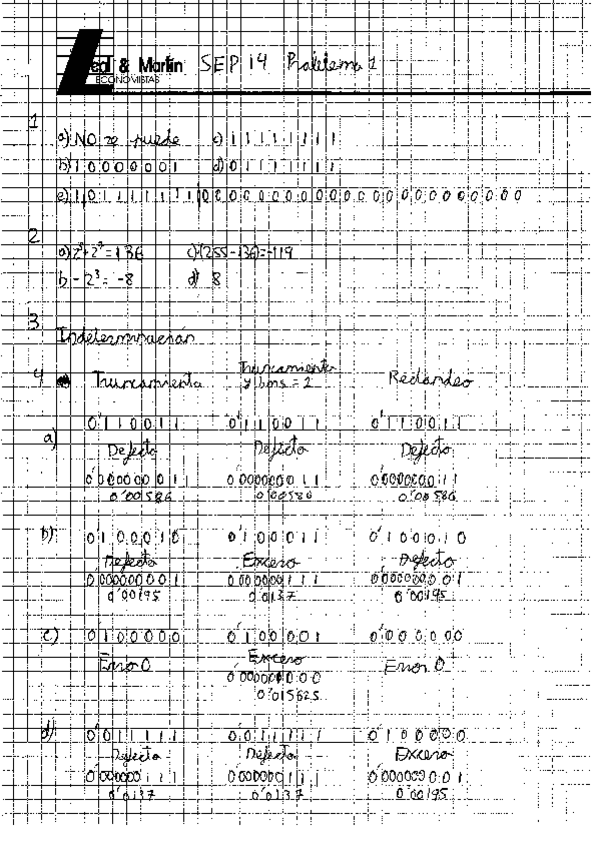 Leal & Martín SEP 14 Problema 1
ECONOMISTAS
1
a) NO se puede c) 1 1 1 1 1 1 1 1
b) 1 0 0 0 0 0 0 1 d) 0 1 1 1 1 1 1 1
e)
2
a) 2³+2⁷=136 c) -(255-136)=-119
b -2³= -8 d) 8
3
Indeterminación
4 Truncamiento Truncamiento y bms = 2 Redondeo
a) 0'110011 0'110011 0'110011
Defecto Defecto Defecto
0'000000011 0'000000011 0'000000011
0'00586 0'00586 0'00586
b) 0'100010 0'100011 0'100010
Defecto Exceso Defecto
0'000000001 0'000000111 0'000000001
0'00195 0'0137 0'00195
c) 0'100000 0'100001 0'100000
Error 0 Exceso Error 0
0'015625
d) 0'011111 0'011111 0'100000
Defecto Defecto Exceso
0'000000111 0'000000111 0'000000001
0'0137 0'0137 0'00195